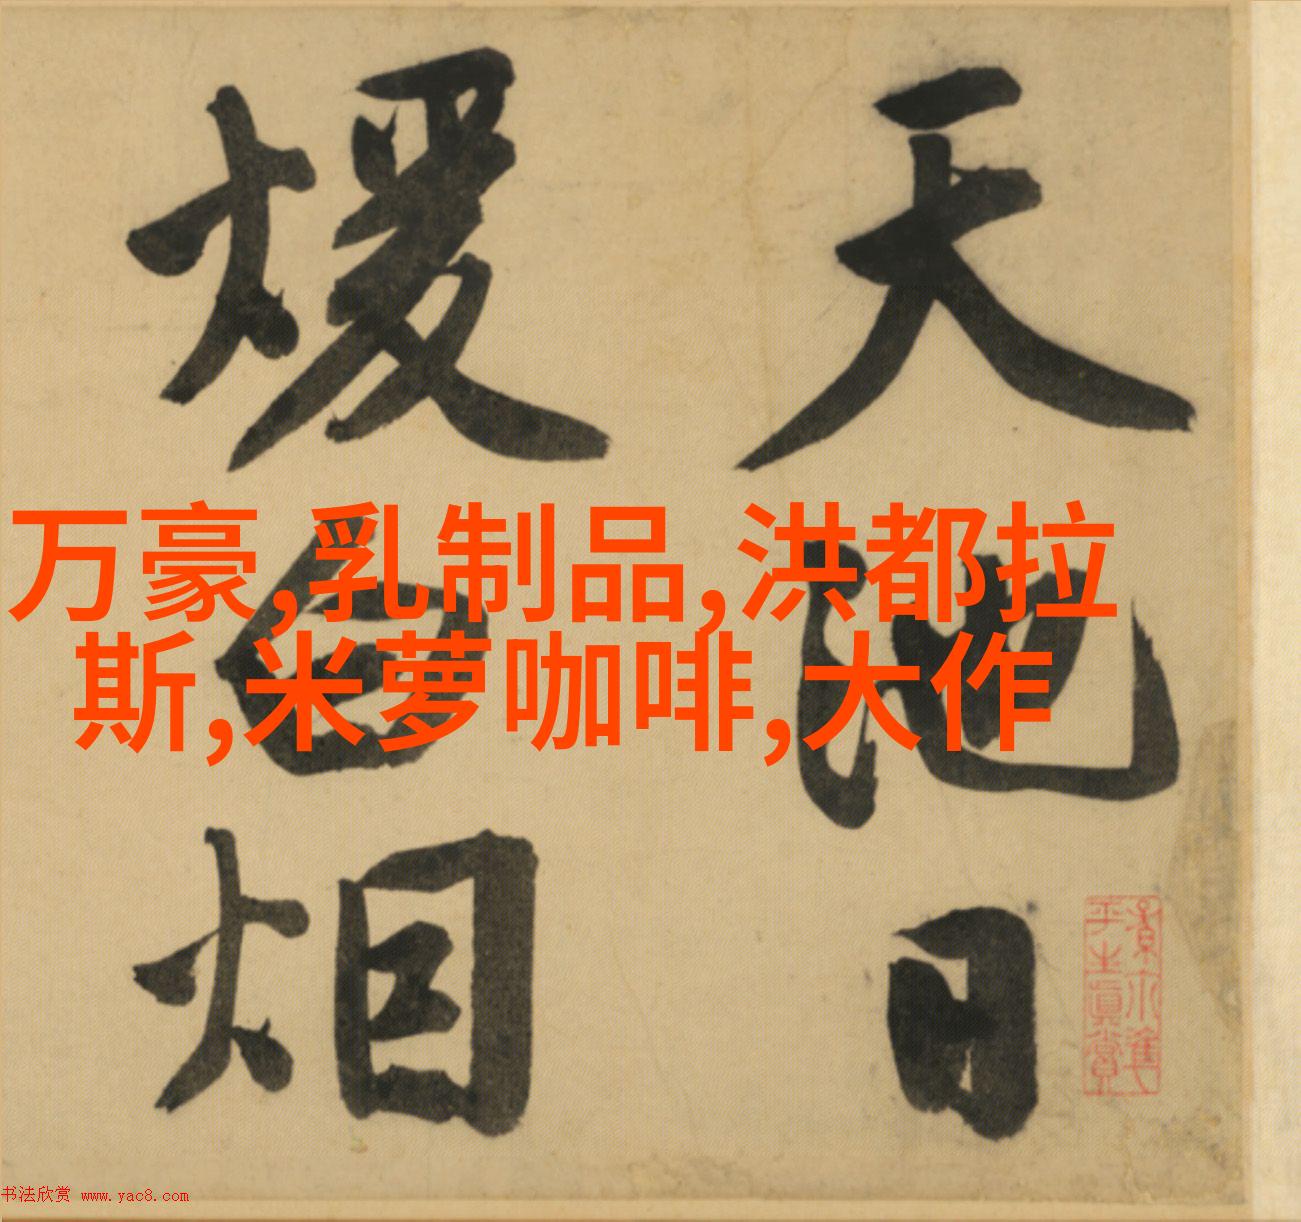 天池日
煖白烟
万豪,乳制品,洪都拉
斯,米萝咖啡,大作
平生真賞
书法欣赏 www.yac8.com